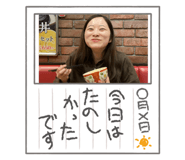 〇月×日
今日は
たのし
かった
です
丼